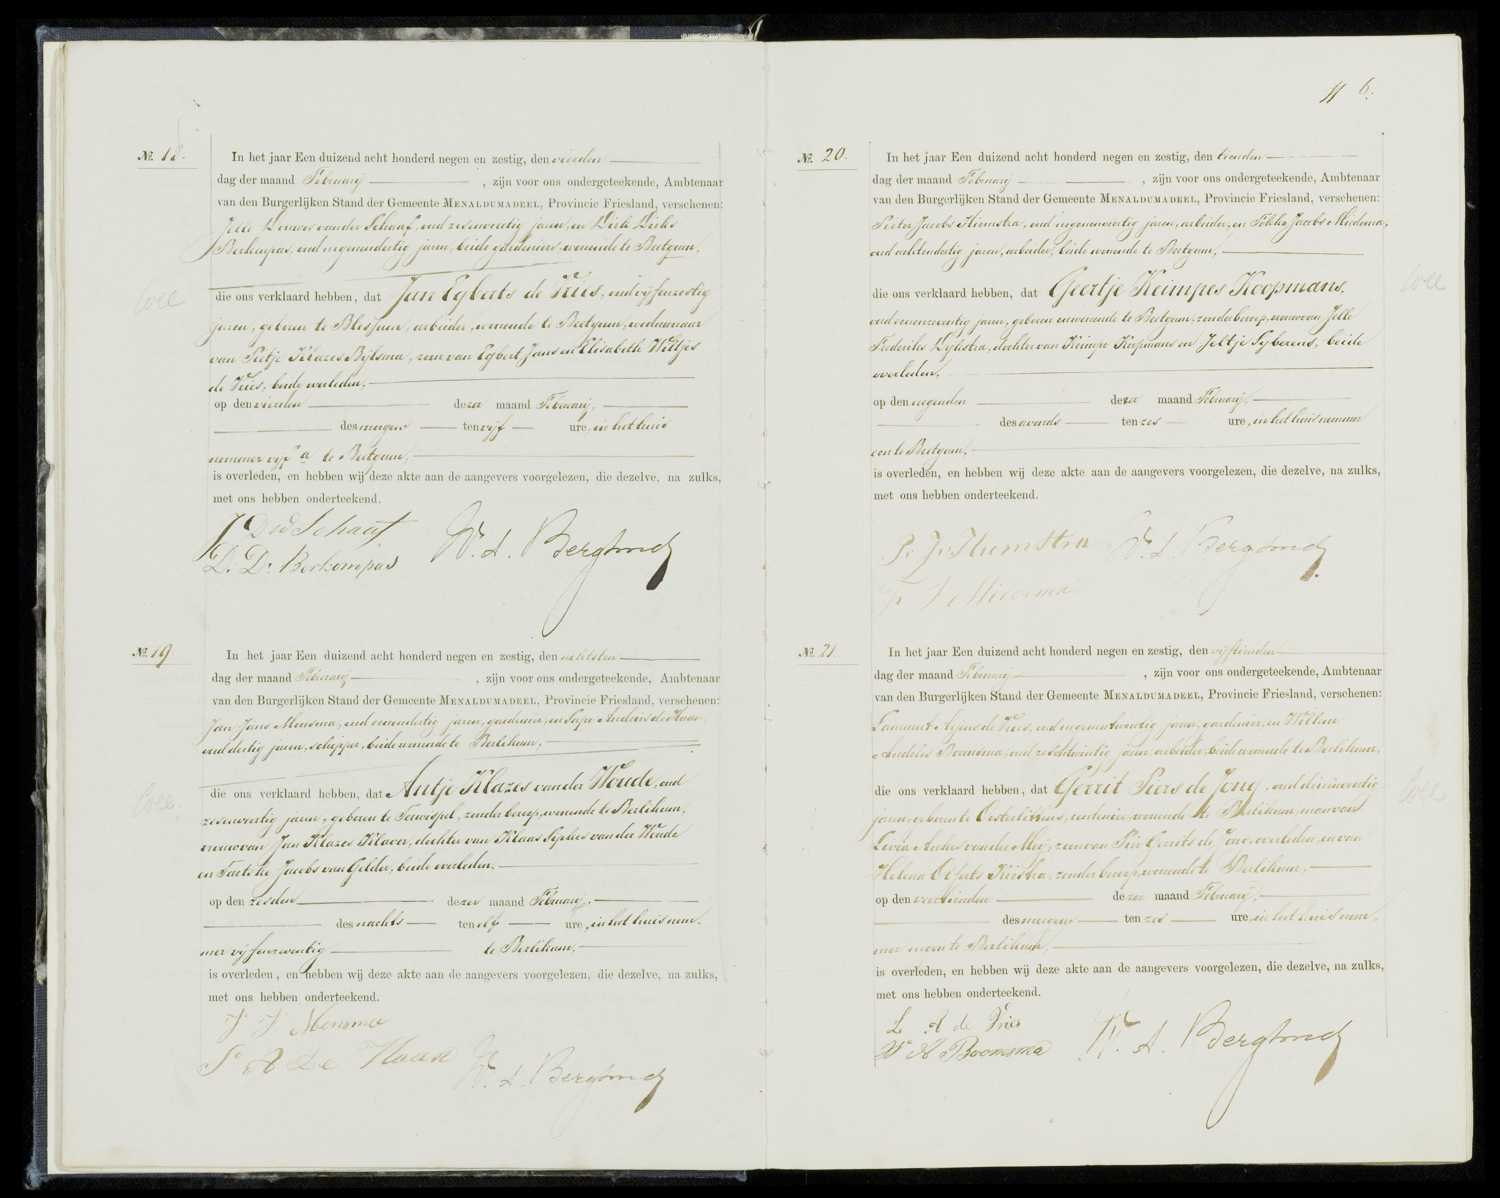 № 18.
In het jaar Een duizend acht honderd negen en zestig, den vierden
dag der maand Februarij , zijn voor ons ondergeteekende, Ambtenaar
van den Burgerlijken Stand der Gemeente MENALDUMADEEL, Provincie Friesland, verschenen:
Jelle Douwes van der Schaaf, oud zesenveertig jaren, en Dirk Dirks
Berkenpas, oud negenendertig jaren, beide gardeniers, wonende te Beetgum,
die ons verklaard hebben, dat Jan Egberts de Vries, oud vijfenzestig
jaren, geboren te Blessum, arbeider, wonende te Beetgum, weduwnaar
van Pietje Klazes Bijlsma, zoon van Egbert Jans en Elisabeth Wiltjes
de Vries, beide overleden,
op den vierden dezer maand Februarij,
des morgens ten vijf ure, in het huis
nommer vijf a te Beetgum,
is overleden, en hebben wij deze akte aan de aangevers voorgelezen, die dezelve, na zulks,
met ons hebben onderteekend.
J D vd Schaaf
D. D. Berkenpas W. L. Bergsma
№ 19
In het jaar Een duizend acht honderd negen en zestig, den achtsten
dag der maand Februarij , zijn voor ons ondergeteekende, Ambtenaar
van den Burgerlijken Stand der Gemeente MENALDUMADEEL, Provincie Friesland, verschenen:
Jan Jans Mensma, oud jaren, gardenier, en Andries de Haan,
oud dertig jaren, schipper, beide wonende te Berlikum,
die ons verklaard hebben, dat Antje Klazes van der Woude, oud
zesenveertig jaren, geboren te , zonder beroep, wonende te Berlikum,
vrouw van Jan Klazes Klaver, dochter van Klaas Sipkes van der Woude
en Jacobs van Gelder, beide overleden,
op den zesden dezer maand Februarij,
des nachts ten elf ure, in het huis num-
mer vijfenzeventig te Berlikum,
is overleden, en hebben wij deze akte aan de aangevers voorgelezen, die dezelve, na zulks,
met ons hebben onderteekend.
J J Mensma
S A De Haan W. L. Bergsma
11 6.
№ 20.
In het jaar Een duizend acht honderd negen en zestig, den tienden
dag der maand Februarij , zijn voor ons ondergeteekende, Ambtenaar
van den Burgerlijken Stand der Gemeente MENALDUMADEEL, Provincie Friesland, verschenen:
Pieter Jacobs Humstra, oud negenenveertig jaren, arbeider, en Fokke Jacobs Miedema,
oud achtendertig jaren, arbeider, beide wonende te Beetgum,
die ons verklaard hebben, dat Geertje Keimpes Koopmans,
oud jaren, geboren en wonende te Beetgum, zonder beroep, vrouw van Jelle
Frederiks Dijkstra, dochter van Keimpe Koopmans en Jeltje Sybrens, beide
overleden,
op den negenden dezer maand Februarij,
des avonds ten zes ure, in het huis nummer
een te Beetgum,
is overleden, en hebben wij deze akte aan de aangevers voorgelezen, die dezelve, na zulks,
met ons hebben onderteekend.
P. J. Humstra W. L. Bergsma
F J Miedema
№ 21
In het jaar Een duizend acht honderd negen en zestig, den vijftienden
dag der maand Februarij , zijn voor ons ondergeteekende, Ambtenaar
van den Burgerlijken Stand der Gemeente MENALDUMADEEL, Provincie Friesland, verschenen:
Lammert de Vries, oud jaren, gardenier, en Willem
Andeles Boomsma, oud zesentwintig jaren, arbeider, beide wonende te Berlikum,
die ons verklaard hebben, dat Gerrit Piers de Jong, oud
jaren, geboren te Oosterlittens, rentenier, wonende te Berlikum, man van
van der Meij, zoon van Pier Gerrits de Jong, overleden, en van
Helena Kiestra, zonder beroep, wonende te Berlikum,
op den veertienden dezer maand Februarij,
des morgens ten zes ure, in het huis num-
mer te Berlikum,
is overleden, en hebben wij deze akte aan de aangevers voorgelezen, die dezelve, na zulks,
met ons hebben onderteekend.
L A de Vries
W A Boomsma W. L. Bergsma